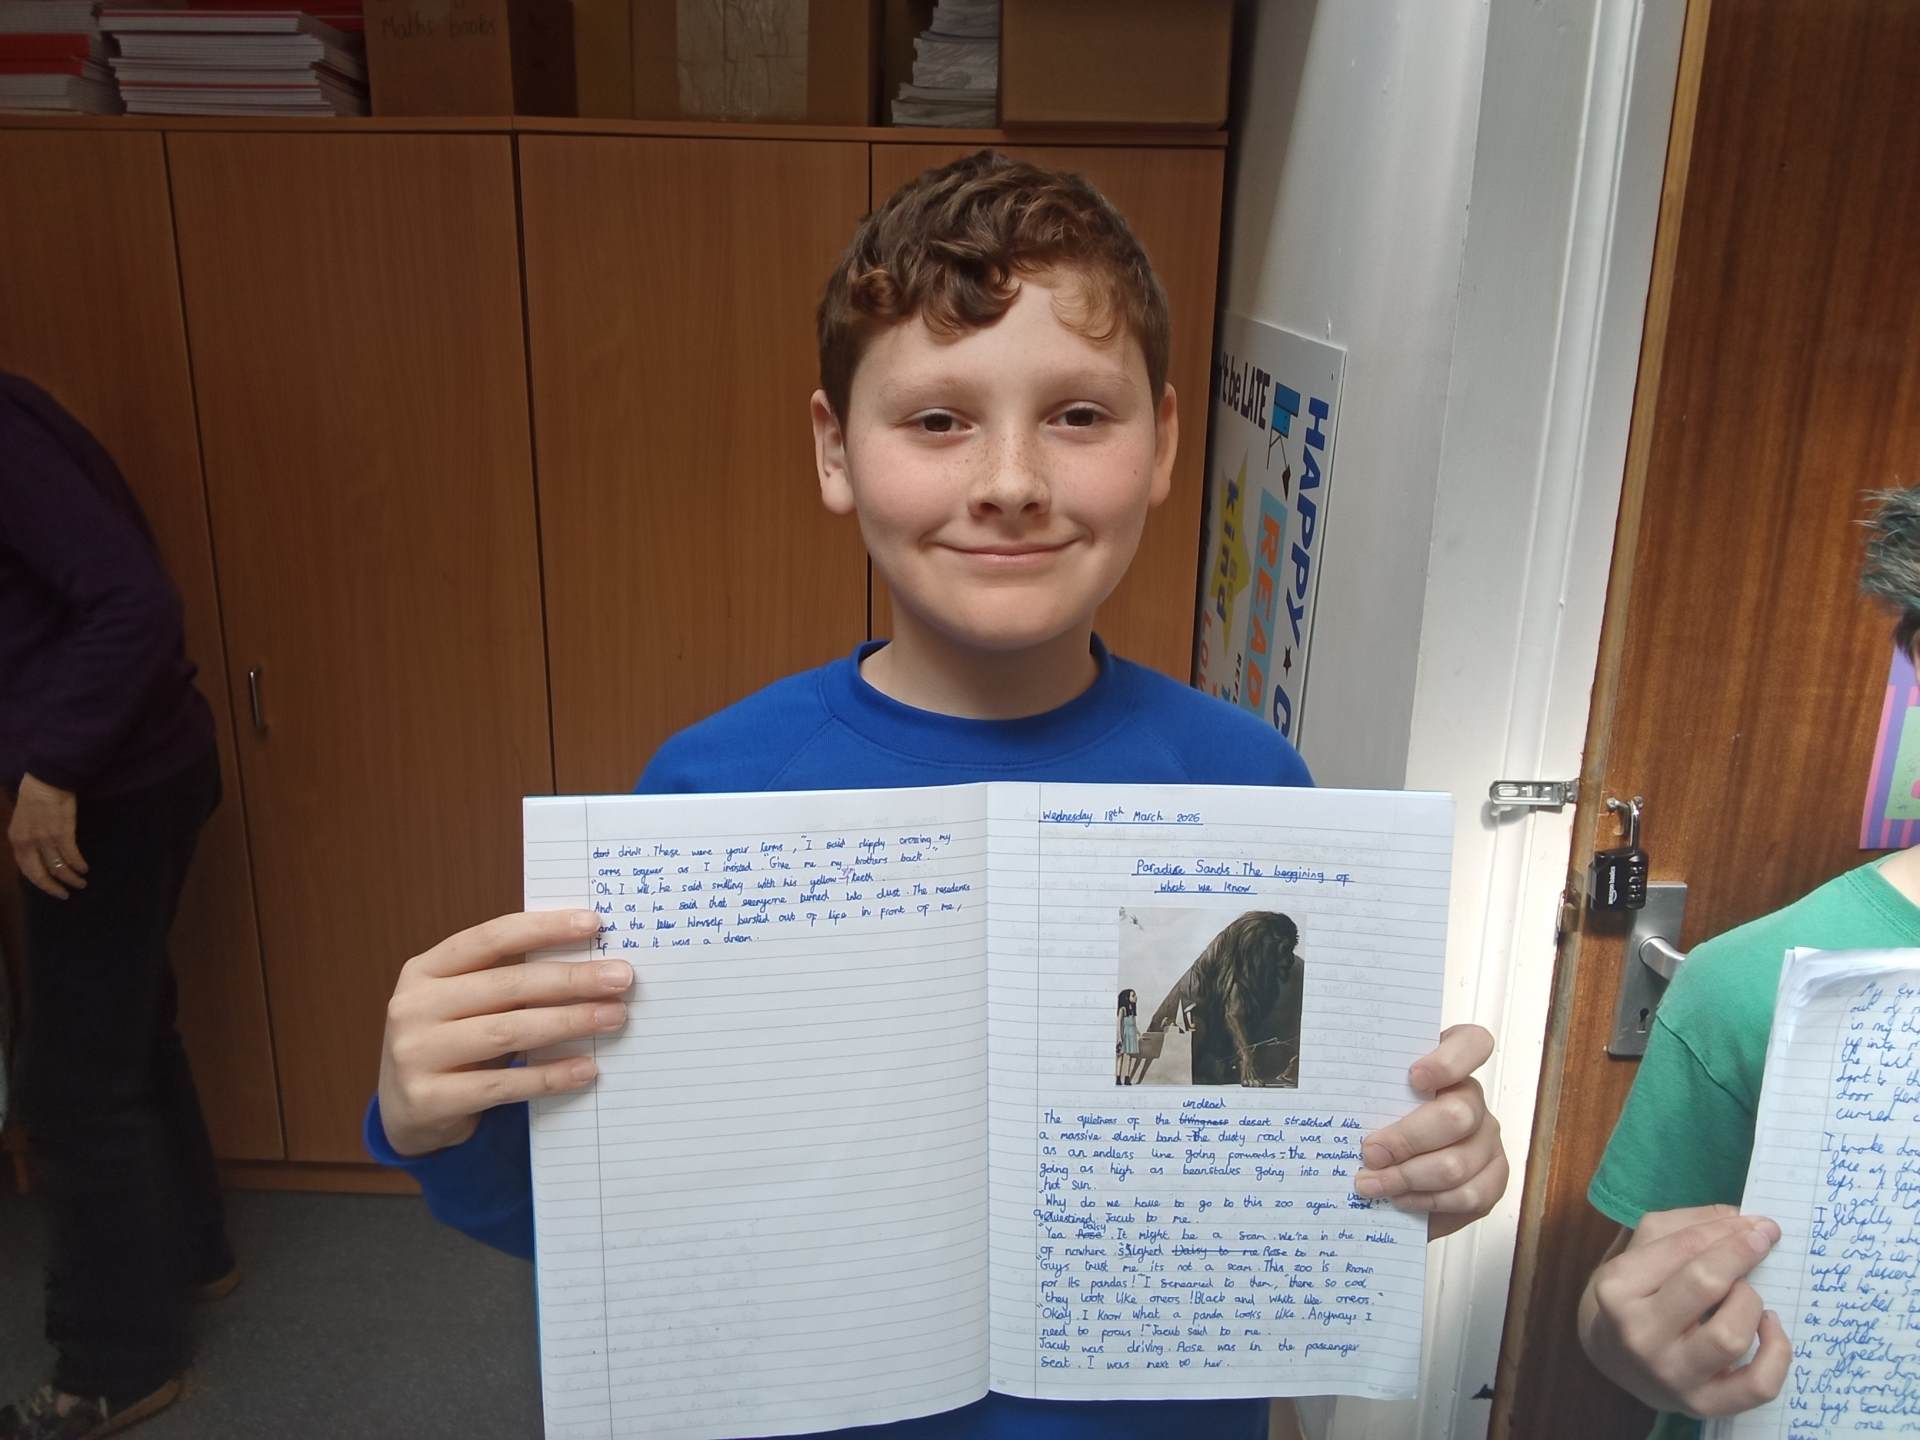 Maths books
't be LATE
HAPPY C
READ
kind
dont drink. These were your terms," I said slipply crossing my
arms together as I insisted. "Give me my brothers back."
"Oh I will," he said smiling with his yellow teeth.
And as he said that everyone turned into dust. The residents
and the himself bursted out of life in front of me,
If like it was a dream.
Wednesday 18th March 2026
Paradise Sands: The beggining of
what we know
undead
The quietness of the livingness desert stretched like
a massive elastic band - the dusty road was as
as an endless line going forwards - the mountains
going as high as beanstalks going into the
hot sun.
"Why do we have to go to this zoo again
questined Jacub to me.
Daisy
"Yea Rose. It might be a scam. We're in the middle
of nowhere sighed Daisy to me Rose to me
"Guys trust me its not a scam. This zoo is known
for its pandas!" I screamed to them, "there so cool
they look like oreos! Black and white like oreos."
"Okay. I know what a panda looks like. Anyways I
need to focus!" Jacub said to me.
Jacub was driving. Rose was in the passenger
seat. I was next to her.
amazon basics
My
out of
in my th
up into
the last
door there
I broke dow
face as the
eyes.
I finally
the day, wh
be
wasp descen
above her. So
a quicked
exchange. The
mystery
the
other
With horrifi
the bugs
said, one m